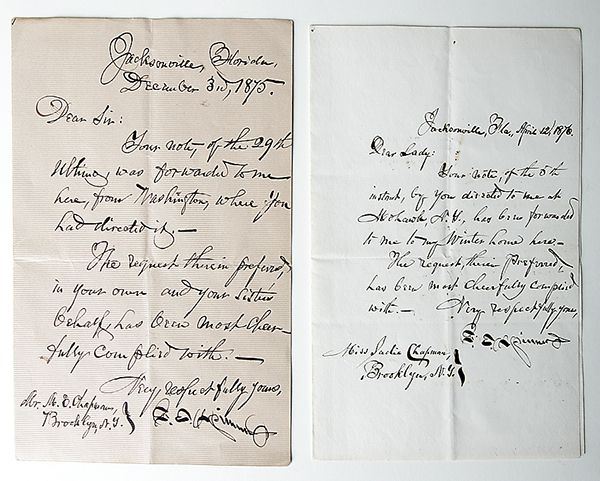 Jacksonville, Florida,
December 3d, 1875.
Dear Sir:
Your note, of the 29th
Ultimo, was forwarded to me
here, from Washington, where you
had directed it.—
The request therein preferred,
in your own and your Sister's
behalf, has been most cheer-
fully complied with.—
Very respectfully yours,
Mr. M. E. Chapman,
Brooklyn, N.Y.
Jacksonville, Fla, April 12, 1876.
Dear Lady:
Your note, of the 5th
instant, by you directed to me at
Mohawk, N.Y., has been forwarded
to me to my Winter home here.—
The request, therein preferred,
has been most cheerfully complied
with.— Very respectfully yours,
Miss Sadie Chapman,
Brooklyn, N.Y.